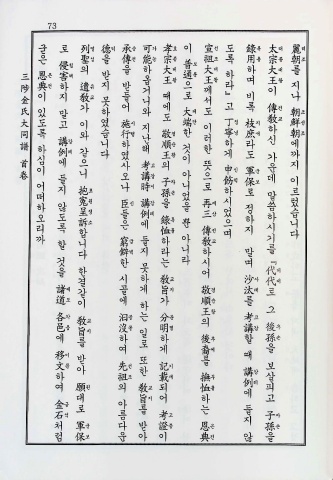 麗朝를 지나 朝鮮朝에까지 이르렀습니다
太宗大王이 傳敎하신 가운데 말씀하시기를 『代代로 그 後孫을 보살피고 子孫을
錄用하며 비록 枝庶라도 軍保로 정하지 말며 沙汰를 考講할 때 講例에 들지 않
도록 하라』고 丁寧하게 申飭하시었으며
宣祖大王께서도 이러한 뜻으로 再三 傳敎하시어 敬順王의 後裔를 撫恤하는 恩典
이 普通으로 大端한 것이 아니었을 뿐 아니라
孝宗大王 때에도 敬順王의 子孫을 錄恤하라는 敎旨가 分明하게 記載되어 考證이
可能하옵거니와 지난해 考講時 講例에 들지 못하게 하는 일로 또한 敎旨를 받아
承傳을 받들어 施行하였사오나 臣等은 窮僻한 시골에 汨沒하여 先祖의 아름다운
德을 받지 못하였습니다
列聖의 遺敎가 이와 같으니 抱寃呈訴합니다 한결같이 敎旨를 받아 願대로 軍保
로 侵害하지 말고 講例에 들지 않도록 할 것을 諸道 各邑에 移文하여 金石처럼
굳은 恩典이 있도록 하심이 어떠하오리까
三陟金氏大同譜 首卷
73